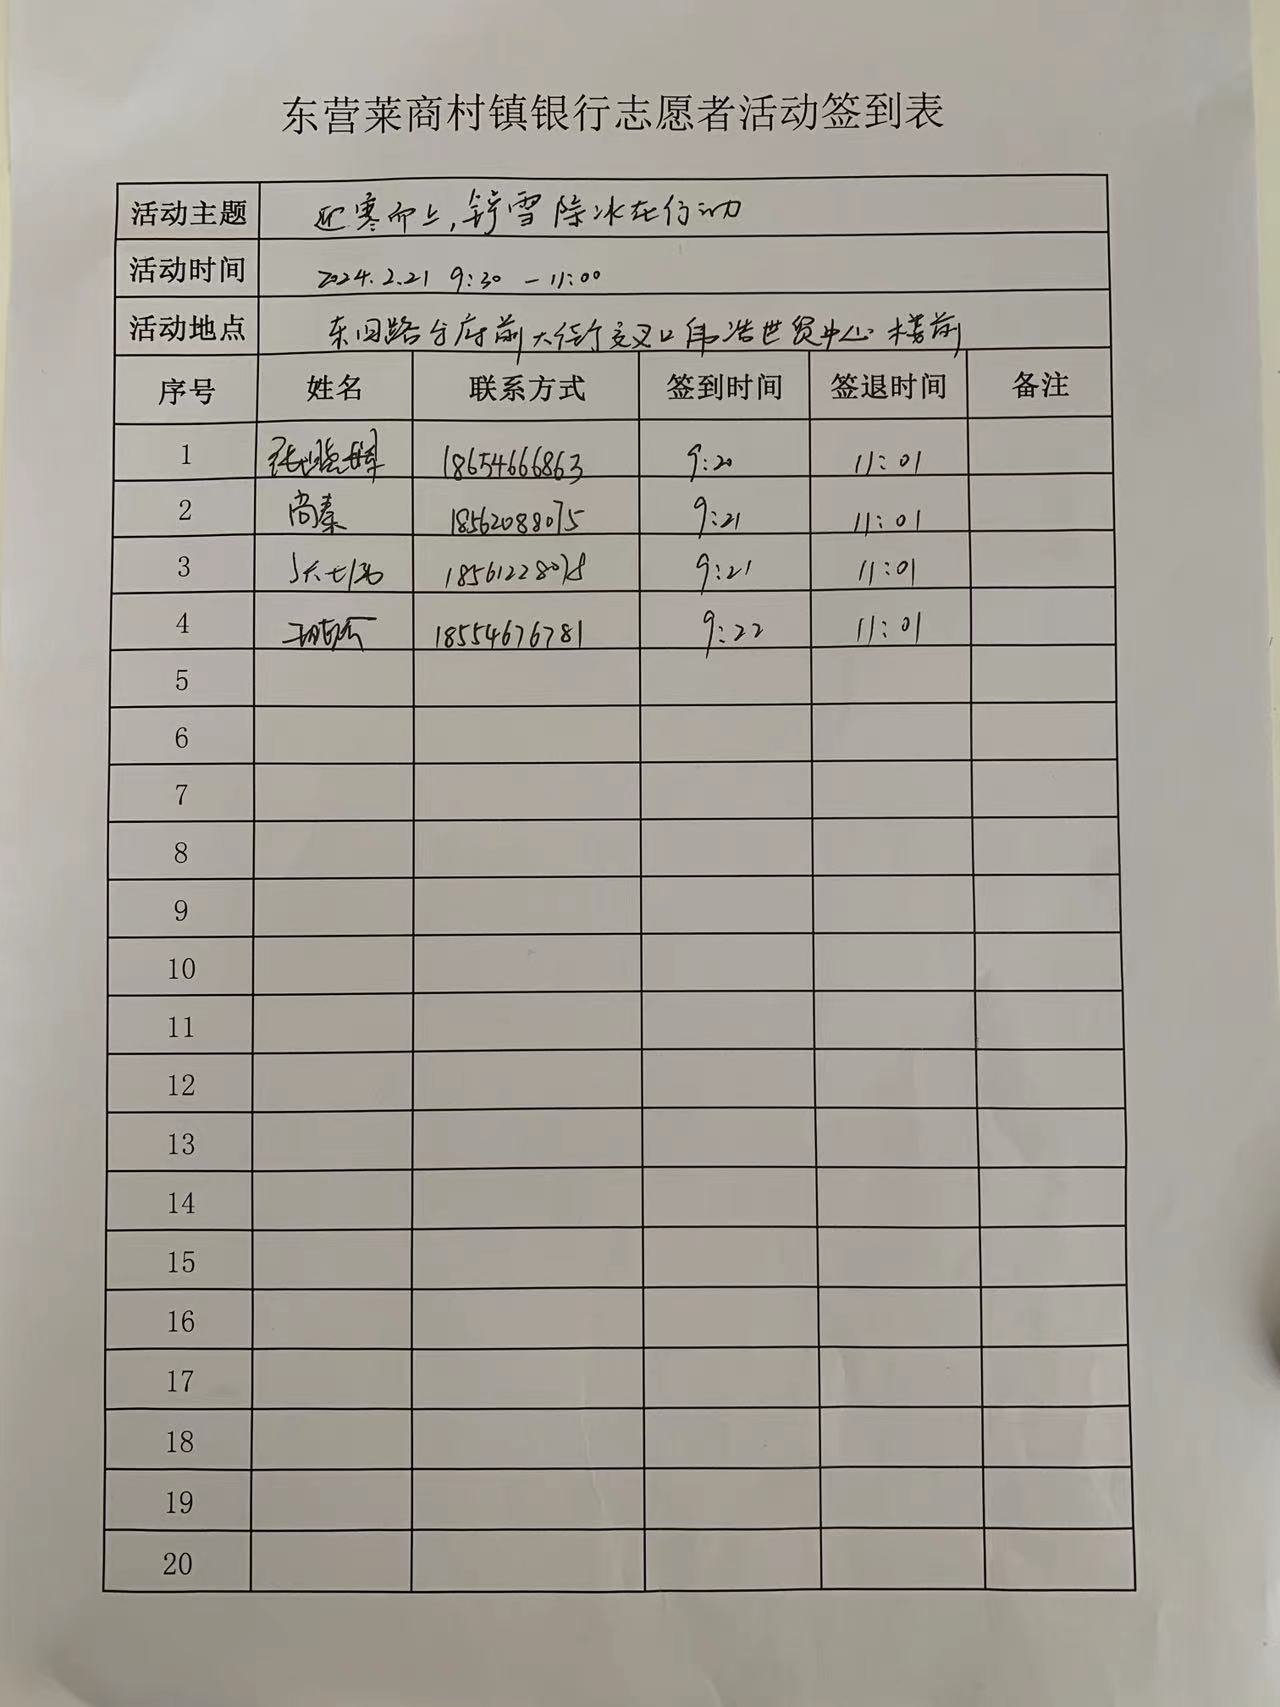 东营莱商村镇银行志愿者活动签到表
活动主题 迎寒而上,铲雪除冰在行动
活动时间 2024.2.21 9:30-11:00
活动地点 东四路与府前大街交叉口伟浩世贸中心楼前
序号 姓名 联系方式 签到时间 签退时间 备注
1 18654666863 9:20 11:01
2 尚秦 18562088075 9:21 11:01
3 18561228078 9:21 11:01
4 18554676781 9:22 11:01
5
6
7
8
9
10
11
12
13
14
15
16
17
18
19
20